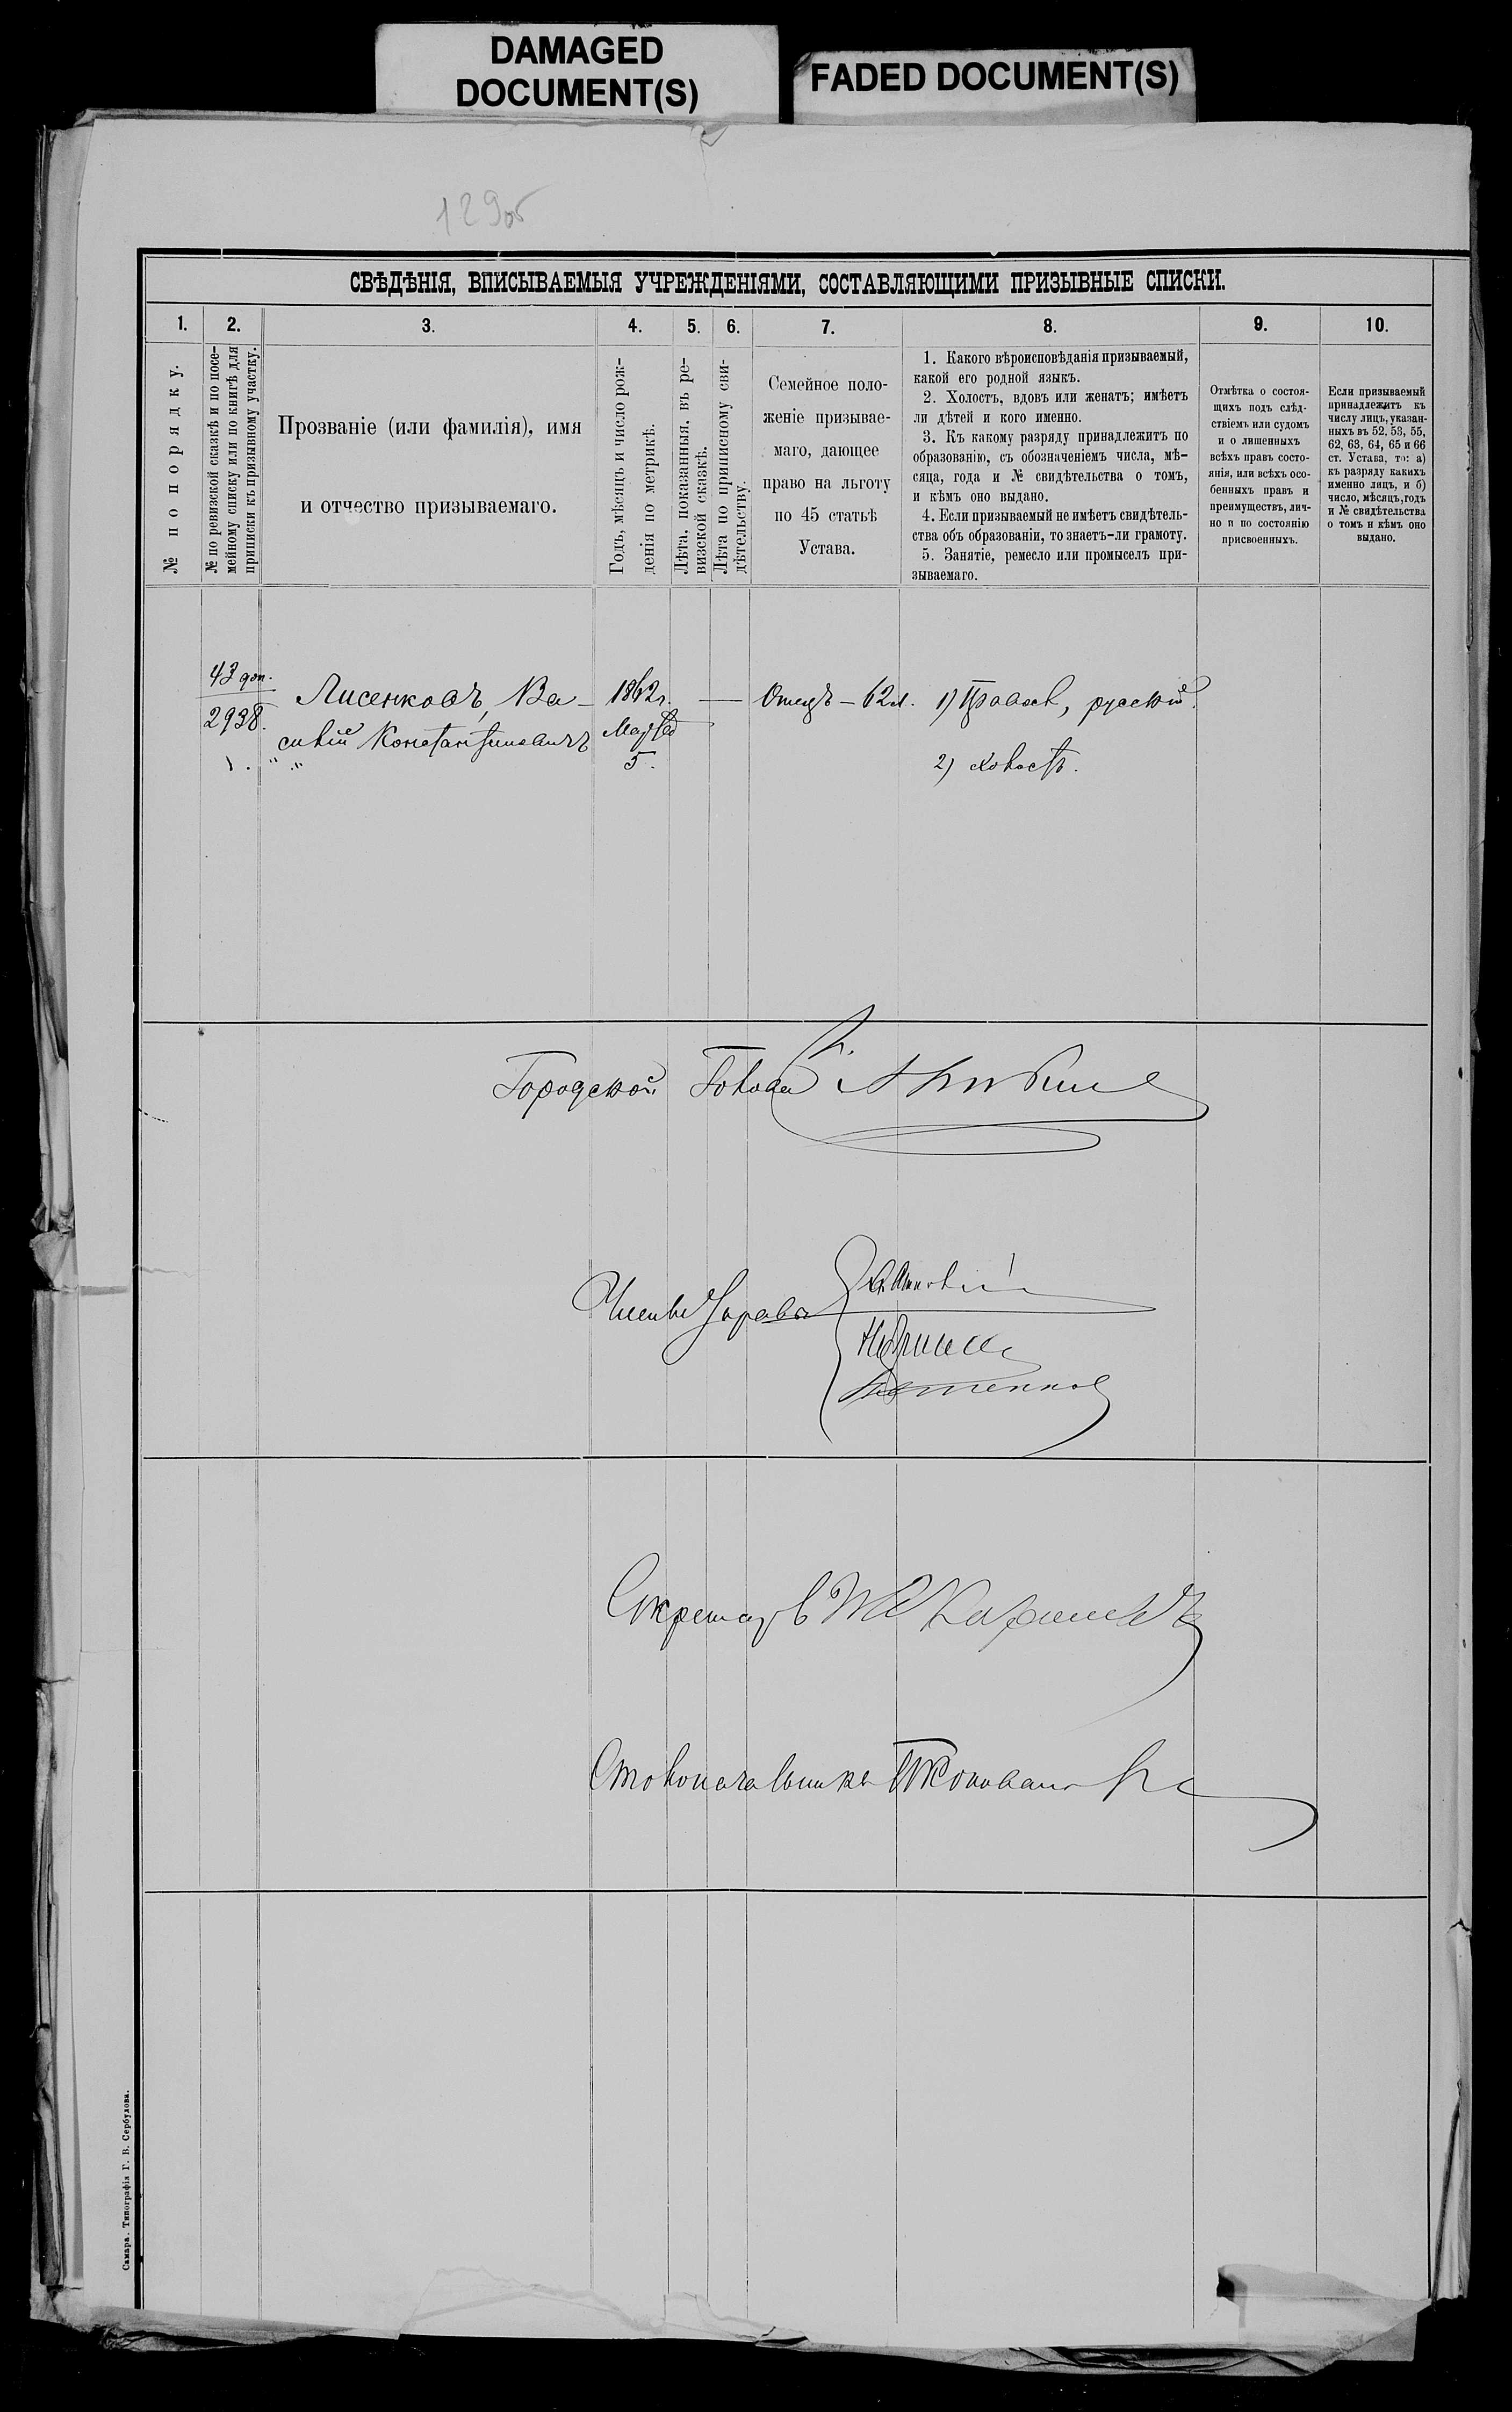 DAMAGED
DOCUMENT(S)
FADED DOCUMENT(S)
129об
СВѢДѢНІЯ, ВПИСЫВАЕМЫЯ УЧРЕЖДЕНІЯМИ, СОСТАВЛЯЮЩИМИ ПРИЗЫВНЫЕ СПИСКИ.
1.
2.
3.
4.
5.
6.
7.
8.
9.
10.
№ по порядку.
№ по ревизской сказкѣ и по посе-
мейному списку или по книгѣ для
приписки къ призывному участку.
Прозваніе (или фамилія), имя
и отчество призываемаго.
Годъ, мѣсяцъ и число рож-
денія по метрикѣ.
Лѣта, показанныя въ ре-
визской сказкѣ.
Лѣта по приписному сви-
дѣтельству.
Семейное поло-
женіе призывае-
маго, дающее
право на льготу
по 45 статьѣ
Устава.
1. Какого вѣроисповѣданія призываемый,
какой его родной языкъ.
2. Холостъ, вдовъ или женатъ; имѣетъ
ли дѣтей и кого именно.
3. Къ какому разряду принадлежитъ по
образованію, съ обозначеніемъ числа, мѣ-
сяца, года и № свидѣтельства о томъ,
и кѣмъ оно выдано.
4. Если призываемый не имѣетъ свидѣтель-
ства объ образованіи, то знаетъ-ли грамоту.
5. Занятіе, ремесло или промыселъ при-
зываемаго.
Отмѣтка о состоя-
щихъ подъ слѣд-
ствіемъ или судомъ
и о лишенныхъ
всѣхъ правъ состо-
янія, или всѣхъ осо-
бенныхъ правъ и
преимуществъ, лич-
но и по состоянію
присвоенныхъ.
Если призываемый
принадлежитъ къ
числу лицъ, указан-
ныхъ въ 52, 53, 55,
62, 63, 64, 65 и 66
ст. Устава, то: а)
къ разряду какихъ
именно лицъ, и б)
число, мѣсяцъ, годъ
и № свидѣтельства
о томъ и кѣмъ оно
выдано.
43 доп.
2938.
Лисенковъ, Ва-
силій Константиновичъ
1862 г.
Марта
5.
—
—
Отецъ — 62 л.
1) Правосл, русскій.
2) холостъ.
Городской Голова
Члены Управы
Секретарь
Столоначальникъ
Самара. Типографія Г. В. Сербулова.